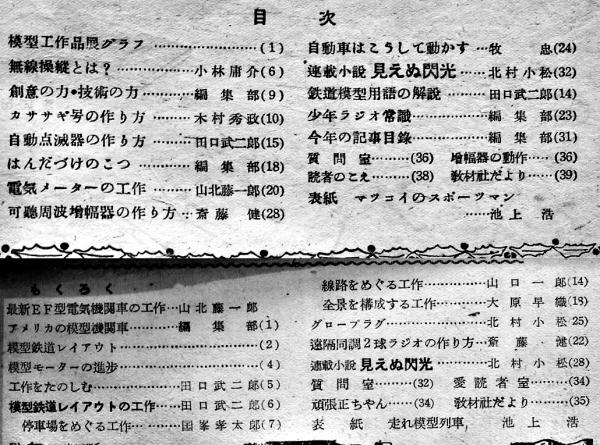 目次
模型工作品展グラフ……(1)
無線操縦とは?……小林庸介(6)
創意の力・技術の力……編集部(9)
カササギ号の作り方……木村秀政(10)
自動点滅器の作り方……田口武二郎(15)
はんだづけのこつ……編集部(18)
電気メーターの工作……山北藤一郎(20)
可聴周波増幅器の作り方…斎藤健(28)
自動車はこうして動かす…牧忠(24)
連載小説 見えぬ閃光……北村小松(32)
鉄道模型用語の解説……田口武二郎(14)
少年ラジオ常識……編集部(23)
今年の記事目録……編集部(31)
質問室……(36) 増幅器の動作…(36)
読者のこえ……(38) 教材社だより…(39)
表紙 マツコイのスポーツマン
……池上浩
もくろく
最新EF型電気機関車の工作…山北藤一郎
アメリカの模型機関車……編集部(1)
模型鉄道レイアウト……(2)
模型モーターの進歩……(4)
工作をたのしむ……田口武二郎(5)
模型鉄道レイアウトの工作…田口武二郎(6)
停車場をめぐる工作…国峯孝太郎(7)
線路をめぐる工作……山口一郎(14)
全景を構成する工作……大原早織(18)
グロープラグ……北村小松25)
遠隔同調2球ラジオの作り方…斎藤・健(22)
連載小説 見えぬ閃光……北村小松(28)
質問室……(32) 愛読者室……(34)
頑張正ちやん……(34) 教材社だより…(35)
表紙 走れ模型列車, 池上浩